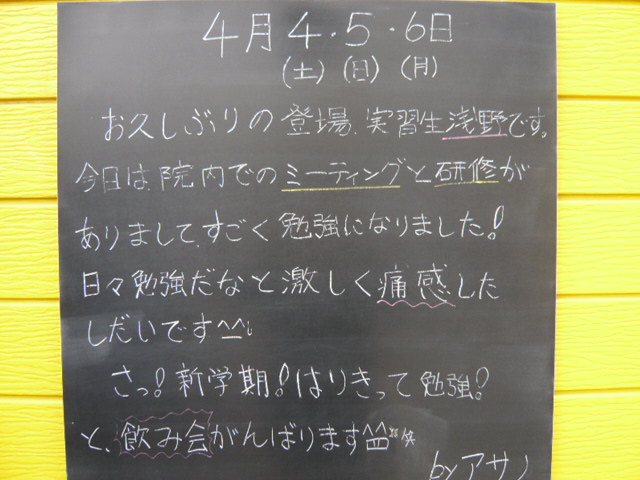 4月4・5・6日
(土)(日)(月)
お久しぶりの登場、実習生浅野です。
今日は、院内でのミーティングと研修が
ありまして、すごく勉強になりました!
日々勉強だなと激しく痛感した
しだいです^^;
さっ!新学期!はりきって勉強!
と、飲み会がんばります^^笑
byアサノ